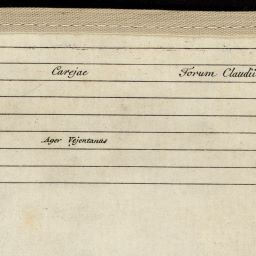 Carejae Forum Claudii
Ager Vejentanus